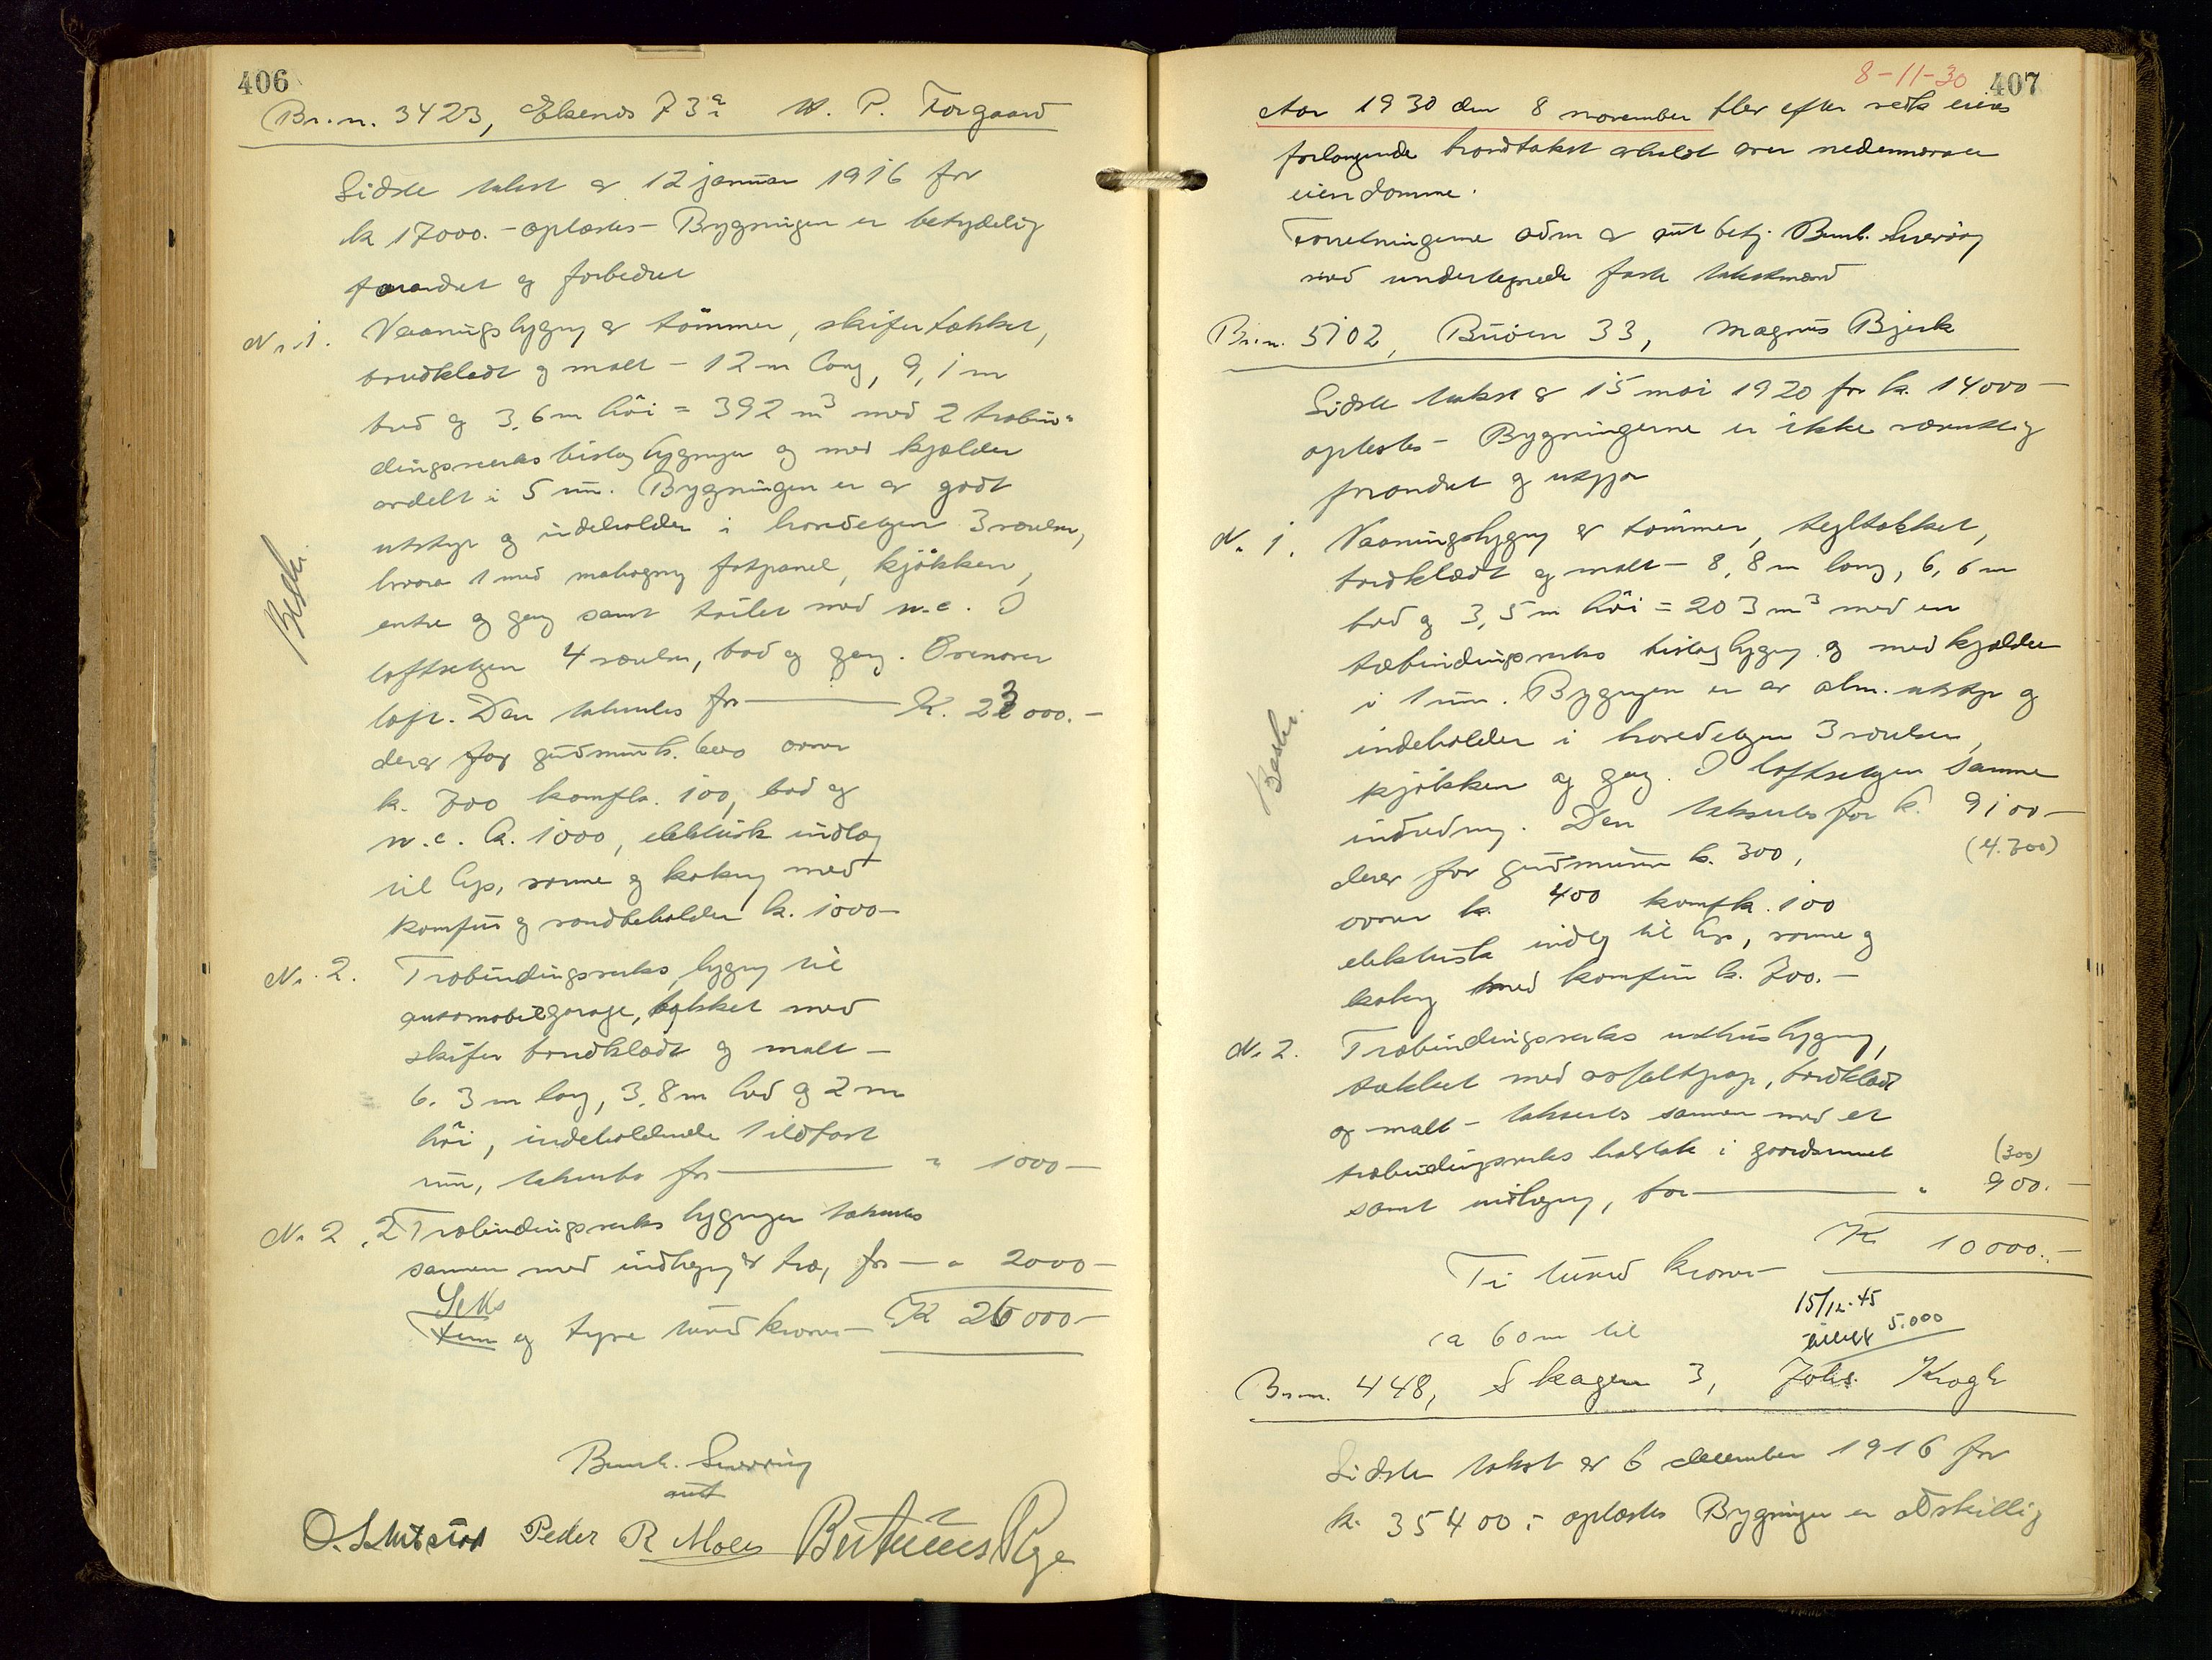 406
Br.n. 3423, Ekenes 73a W. P. Torgaard
Sidste takst er 12 januar 1916 for
k 17000.- oplæstes - Bygningen er betydelig
forandret og forbedret
Nr. 1. Vaaningsbygng av tømmer, skifertækket,
bordklædt og malt - 12 m lang, 9,1 m
bred og 3,6 m høi = 392 m³ med 2 træbin-
dingsverks bislagbygninger og med kjælder
avdelt i 5 rum. Bygningen er av godt
utstyr og indeholder i hovedetagen 3 værelser,
hvorav 1 med mahogny fotpanel, kjøkken,
entre og gang samt toilet med w.c. I
loftsetagen 4 værelser, bad og gang. Ovenover
loft. Den takseres for K. 23000.-
derav for grundmur k.
k. 700 komfkr. 100, bad og
w.c. k. 1000, elektrisk indlæg
til lys, varme og kokning med
komfur og vandbeholder k. 1000-
Nr. 2. Træbindingsverks bygng til
automobilgarage, tækket med
skifer bordklædt og malt -
6.3 m lang, 3.8 m bred og 2 m
høi, indeholdende 1 ildfast
rum, takseres for " 1000-
Nr. 2 . 2 Træbindingsverks bygninger takseres
sammen med indhegng av træ, for - " 2000-
Seks
Fem og tyve tusind kroner - K 26000-
Beskr.
Bernh. Sverdrup
aut
O. Peder R Moles Bertinius Rye
8-11-30 407
Aar 1930 den 8 november blev efter vedk eieres
forlangende brandtakst avholdt over nedennævnte
eiendomme.
Forretningerne adm av aut betj. Bernh. Sverdrup
med undertegnede faste takstmænd
Br.n. 5702, Buøen 33, Magnus Bjerk
Sidste takst av 15 mai 1920 for k. 14000-
oplæstes - Bygningerne er ikke væsentlig
forandret og utgjør
Nr. 1. Vaaningsbygng av tømmer, tegltækket,
bordklædt og malt - 8,8 m lang, 6,6 m
bred og 3,5 m høi = 203 m³ med en
træbindingsverks bislagbygng og med kjælder
i 1 rum. Bygningen er av alm. utstyr og
indeholder i hovedetagen 3 værelser,
kjøkken og gang. I loftsetagen samme
indredning. Den takseres for k. 9100-
(4.700)
derav for grundmuren k. 300,
ovner k. 400 komfk. 100
elektrisk indlæg til lys, varme og
kokng med komfur k. 700.-
Beskr.
Nr. 2. Træbindingsverks uthusbygng,
tækket med asfaltpap, bordklædt
og malt - takseres sammen med et
træbindingsverks halvtak i gaardsrummet
(300)
samt indhegng, for " 900.-
K 10000.-
Ti tusind kroner -
15/12-45
5.000
ca 60 m til
Br.n. 448, Skagen 3, Johs. Krogh
Sidste takst av 6 december 1916 for
k. 35400.- oplæstes Bygningen er adskillig